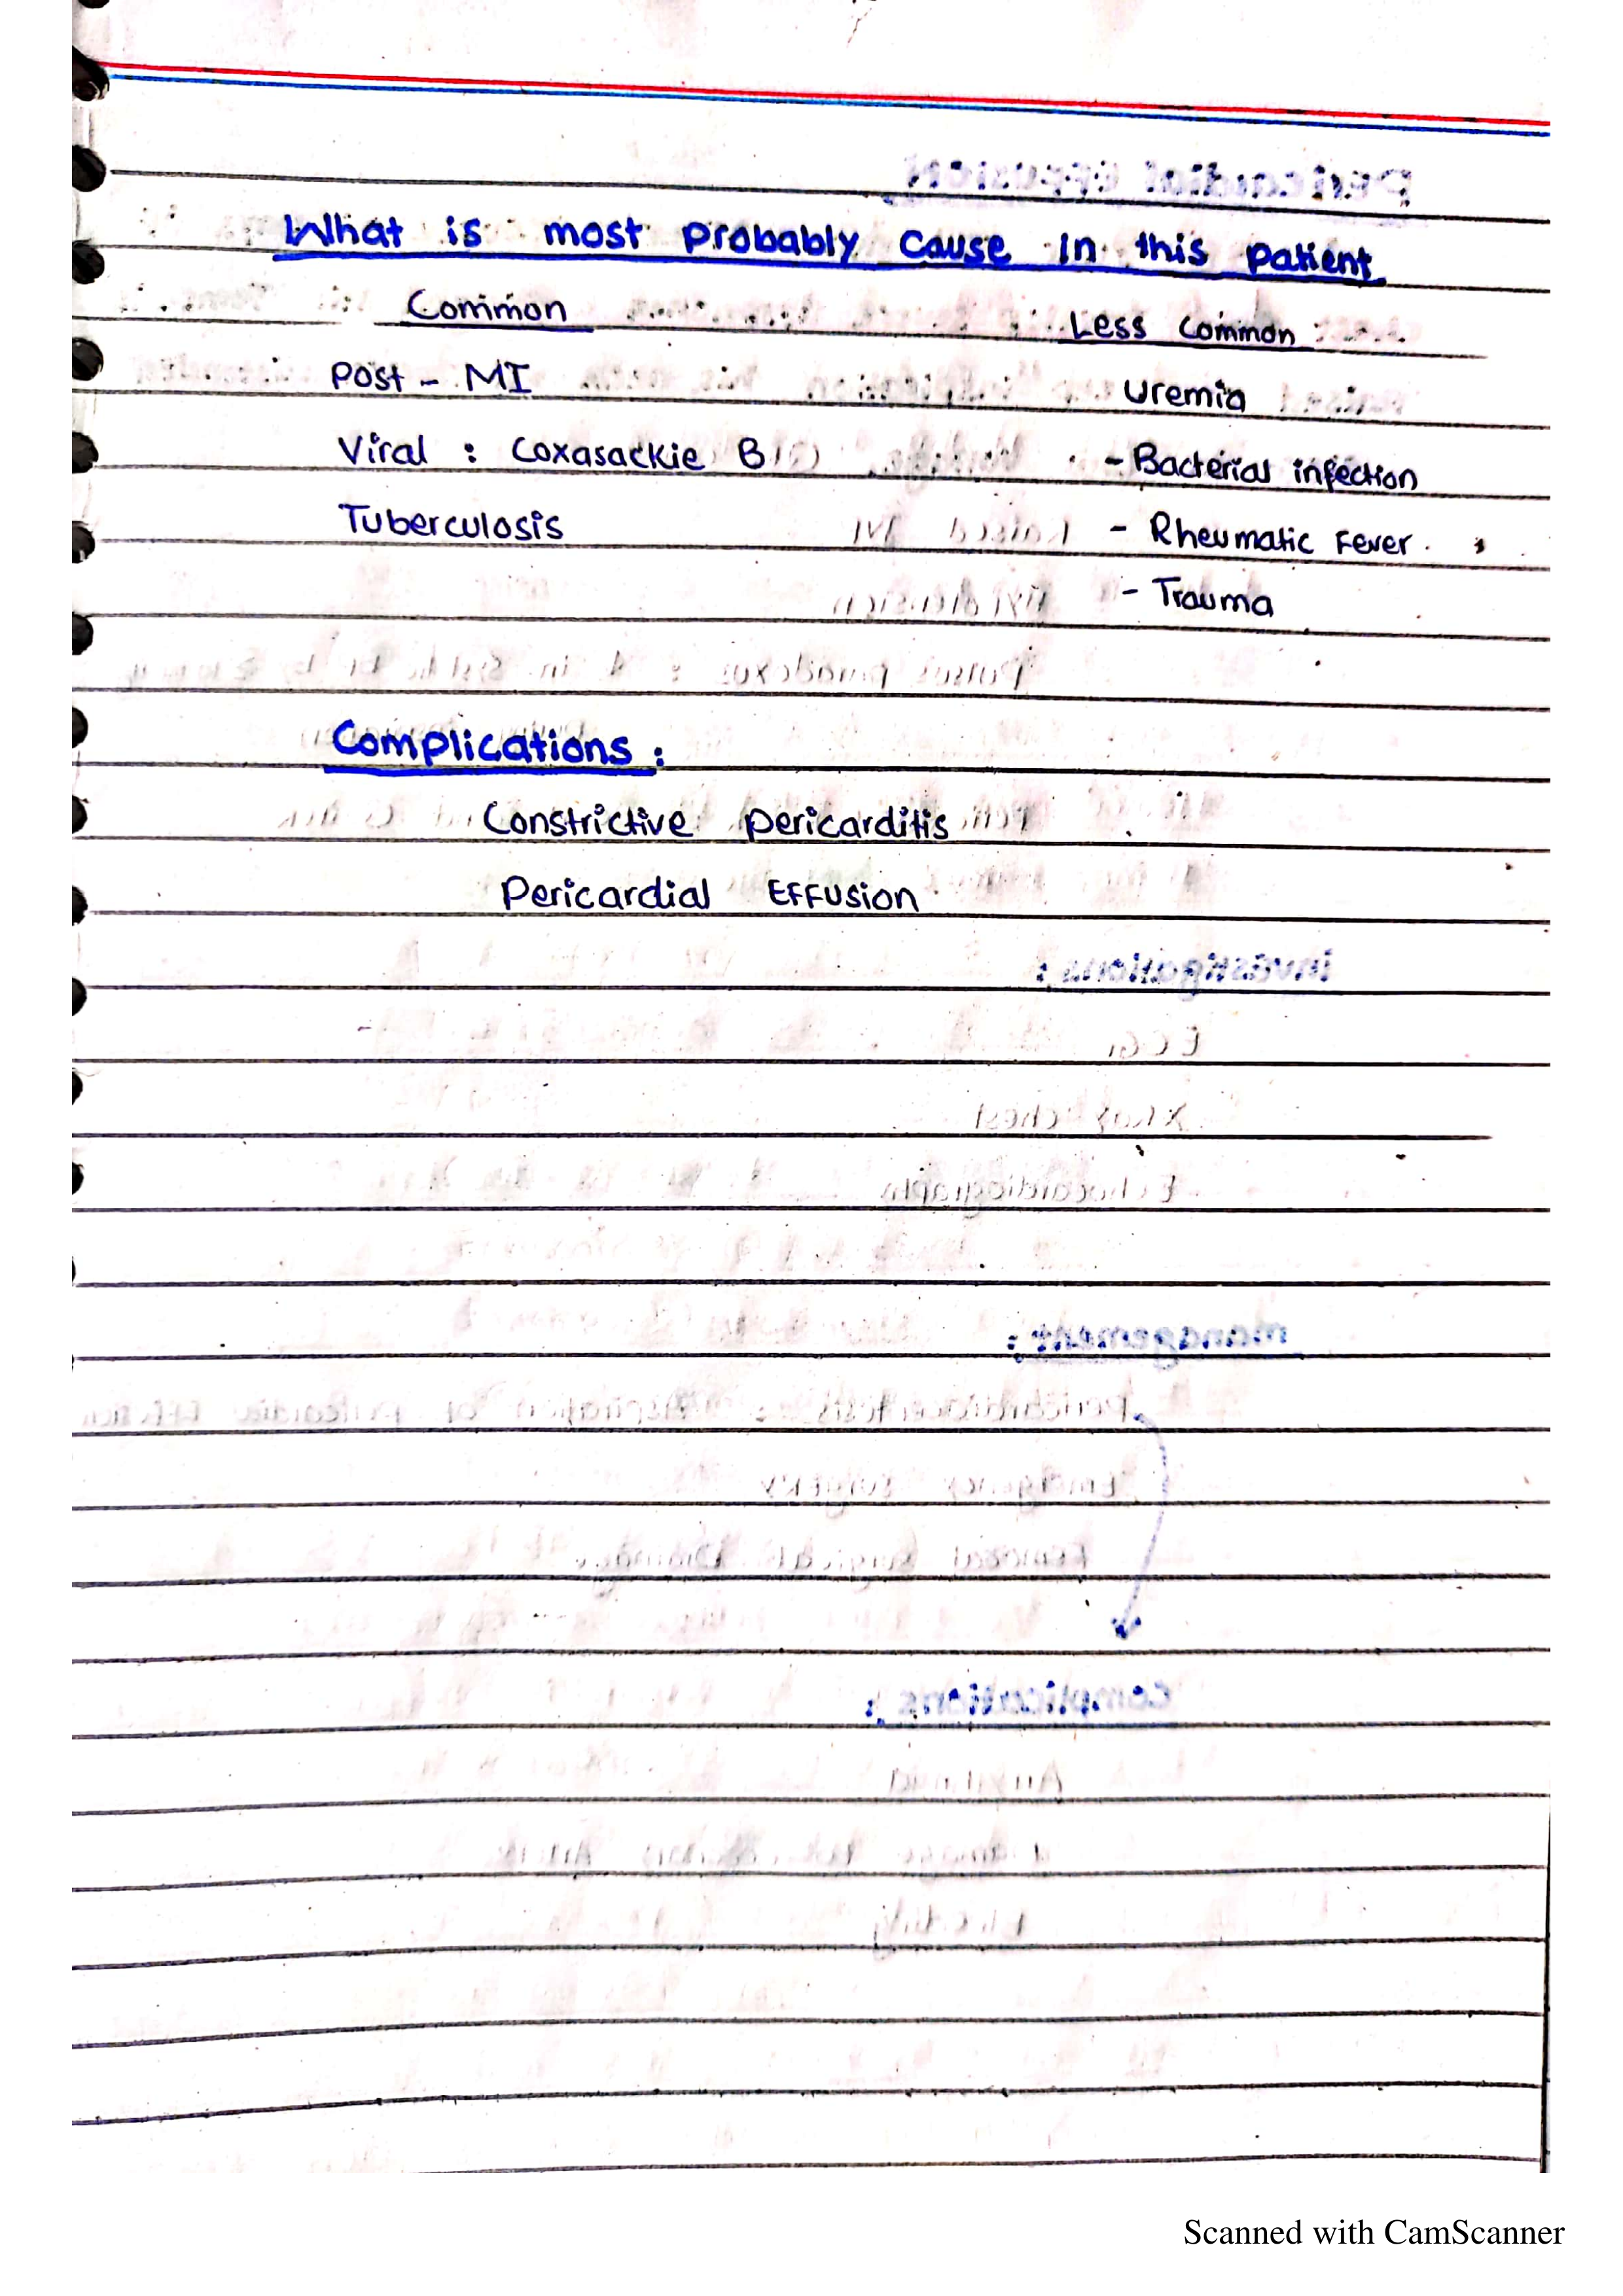 What is most probably cause in this patient
Common Less common
Post - MI Uremia
Viral : Coxasackie B - Bacterial infection
Tuberculosis - Rheumatic Fever
- Trauma
Complications :
Constrictive pericarditis
Pericardial Effusion
Scanned with CamScanner